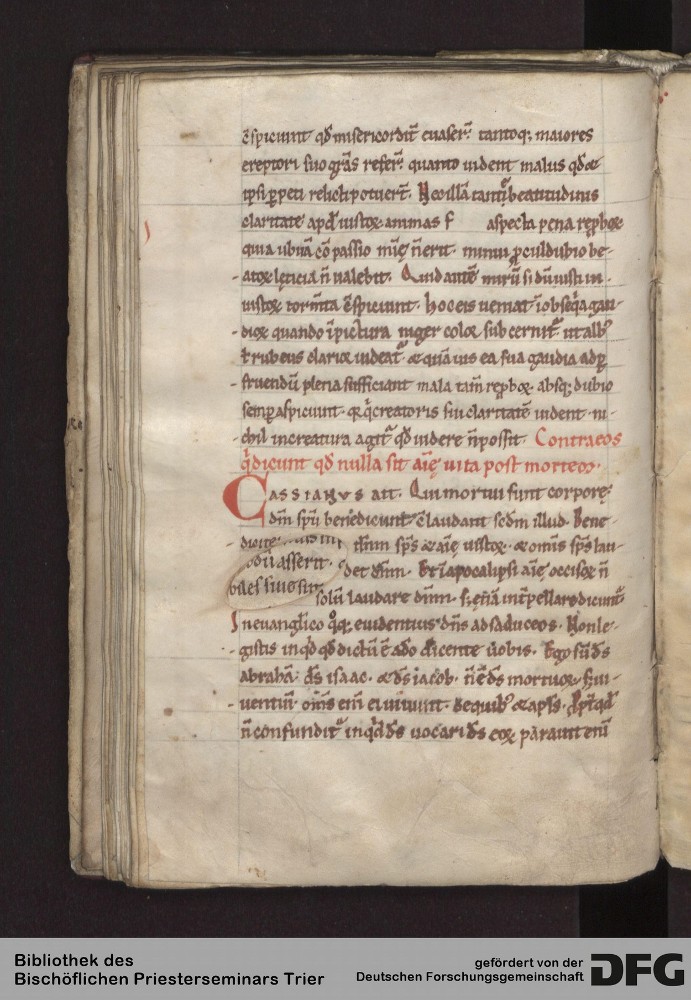 c̄spiciunt qd misericordit̄ euaser̄. tantoq; maiores
ereptori suo gr̄as refer̄. quanto uident malus qd̄ &
ipsi ꝑpeti relicti potuert̄. Nec illā tantā beatitudinis
claritatē apd̄ iustoꝝ animas f aspecta pena reꝓboꝝ
quia ubi iā cōpassio mię n̄erit. minui ꝓculdubio be-
atoꝝ lęticiā n̄ ualebit. Quid autē mirū si dū iusti in-
iustoꝝ torm̄ta c̄spiciunt. hoc eis ueniat ī obseq̄a gau-
dioꝝ quando ī pictura niger coloꝝ subcernit᷑ ut alb᷒
t̄ rubeus clarioꝝ uideat᷑ & quāuis ea sua gaudia adꝑ
fruendū plena sufficiant mala tam̄ reꝓboꝝ absq; dubio
semꝑ aspiciunt. qꝛ q̄ creatoris sui claritatē uident ni-
chil in creatura agit᷑ qd̄ uidere n̄ possit. Contra eos
q̄ dicunt qd̄ nulla sit aīę uita post mortem.
CASSIANUS ait. Qui mortui sunt corporę
dn̄m spū benedicunt & laudant scd̄m illud. Bene-
dicite dn̄m sps̄ & aīę iustoꝝ. & omīs sps̄ lau-
det dn̄m. Et ī apocalipsi aīę occisoꝝ n̄
odū asserit.
bales siue sin
solū laudare dn̄m. s; & iā int̄pellare dicunt᷑
In euanglico q̊q; euidentius dn̄s ad saduceos. Non le-
gistis inqd̄ qd̄ dictū ē a dō dicente uobis. Ego sū ds̄
abrahā. ds̄ isaac. & ds̄ iacob. n̄ ē ds̄ mortuoꝝ s; ui-
uentiū. oms̄ enī ei uiuunt. de quib᷒ & apls̄. ꝓpt̄ qd̄
n̄ confundit᷑ inqd̄ ds̄ uocari ds̄ eoꝝ parauit enī
Bibliothek des
Bischöflichen Priesterseminars Trier
gefördert von der
Deutschen Forschungsgemeinschaft
DFG